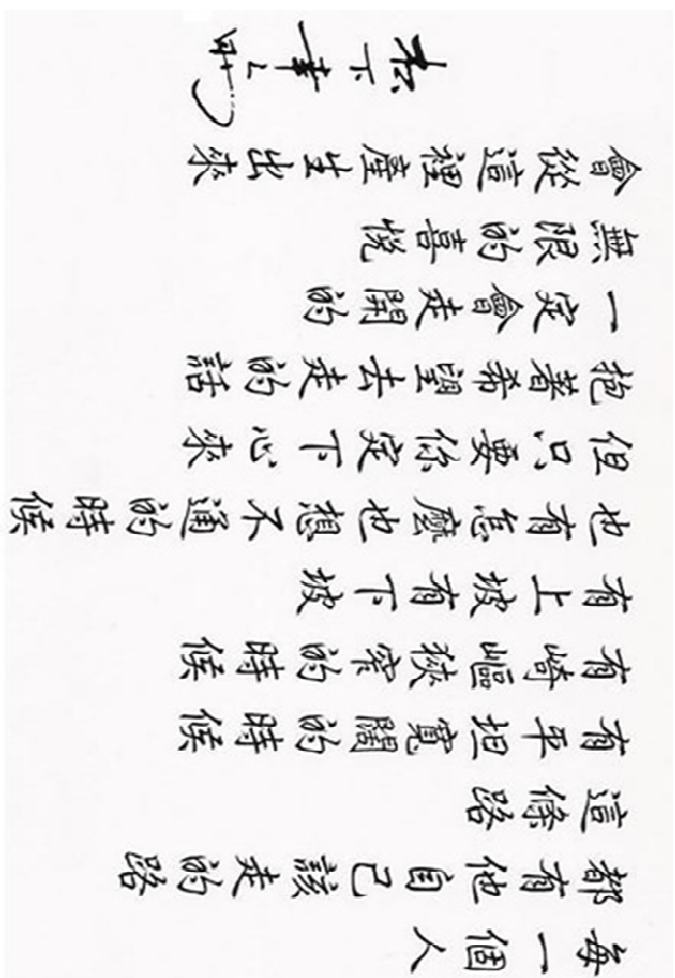 每一個人
都有他自己該走的路
這條路
有平坦寬闊的時候
有崎嶇狹窄的時候
有上坡有下坡
也有怎麼也想不通的時候
但只要你定下心來
抱著希望去走的話
一定會走開的
無限的喜悅
會從這裡產生出來
松下幸之助